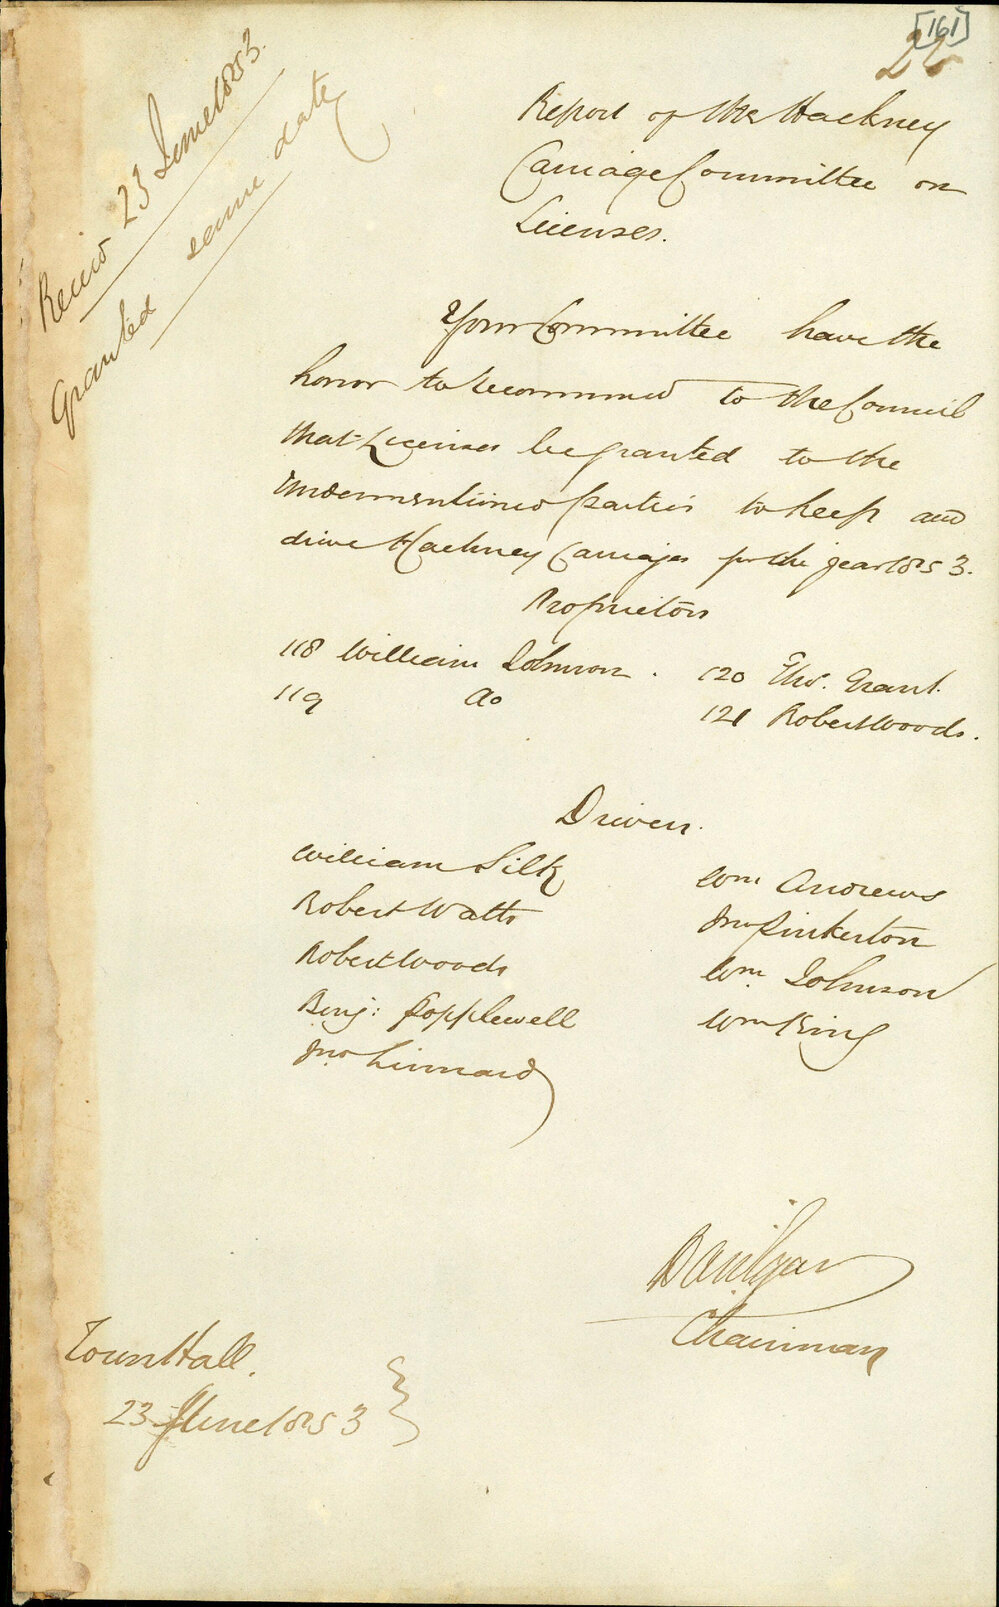 [161]
22
Recivd 23 June 1853.
Granted same date
Report of the Hackney
Carriage Committee on
Licenses.
Your Committee have the
honor to recommend to the Council
that Licenses be granted to the
undermentioned parties to keep and
drive Hackney Carriages for the year 1853.
Proprietors
118 William Johnson. 120 Thos. Grant.
119 do 121 Robert Woods.
Drivers.
William Silk Wm Andrews
Robert Watts Jno Pinkerton
Robert Woods Wm. Johnson
Benj: Popplewell Wm King
Jno. Linnard
Chairman
Town Hall.
23 June 1853